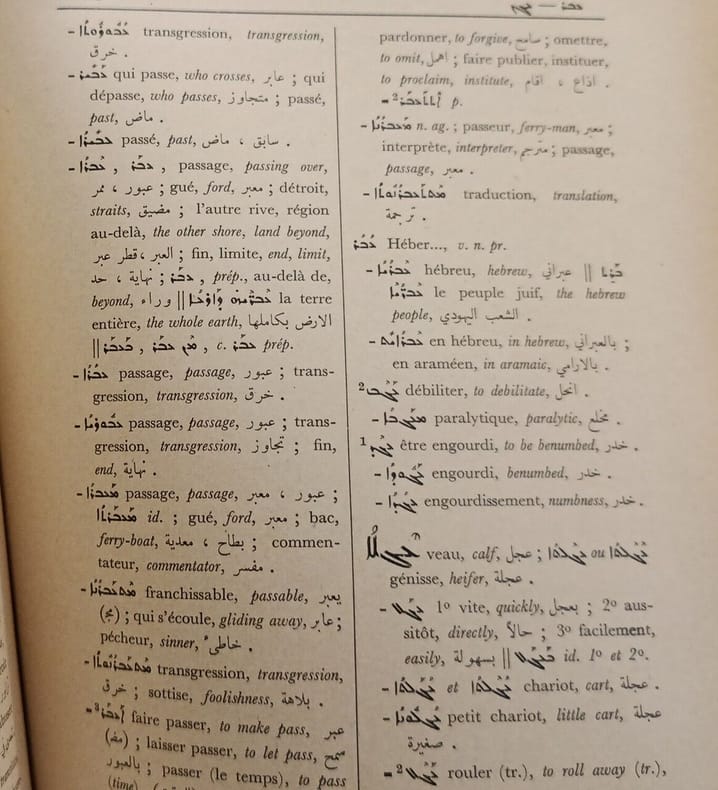 - transgression, transgression,
خرق .
- qui passe, who crosses, عابر ; qui
dépasse, who passes, متجاوز ; passé,
past, ماض .
- passé, past, سابق ، ماض .
- ܥܒܪ , passage, passing over,
عبور ، ممر ; gué, ford, معبر ; détroit,
straits, مضيق ; l'autre rive, région
au-delà, the other shore, land beyond,
العبر ، قطر عبر ; fin, limite, end, limit,
نهاية ، حد ; ܥܒܪ , prép., au-delà de,
beyond, وراء || la terre
entière, the whole earth, الارض بكاملها
|| ܡܢ ܥܒܪ , c. ܥܒܪ prép.
- ܥܒܪܐ passage, passage, عبور ; trans-
gression, transgression, خرق .
- passage, passage, عبور ; trans-
gression, transgression, تجاوز ; fin,
end, نهاية .
- ܡܥܒܪܐ passage, passage, عبور ، معبر ;
ܡܥܒܪܬܐ id. ; gué, ford, معبر ; bac,
ferry-boat, بطاح ، معدية ; commen-
tateur, commentator, مفسر .
- ܡܬܥܒܪܢܐ franchissable, passable, يعبر
(مج) ; qui s'écoule, gliding away, عابر ;
pécheur, sinner, خاطىء .
- ܡܬܥܒܪܢܘܬܐ transgression, transgression,
خرق ; sottise, foolishness, بلاهة .
- ܐܥܒܪ faire passer, to make pass, عبر
(مض) ; laisser passer, to let pass, سمح
بالعبور ; passer (le temps), to pass
(time)
pardonner, to forgive, سامح ; omettre,
to omit, اهمل ; faire publier, instituer,
to proclaim, institute, اذاع ، اقام
-² p.
- ܡܥܒܪܢܐ n. ag. ; passeur, ferry-man, معبر ;
interprète, interpreter, مترجم ; passage,
passage, معبر .
- traduction, translation,
ترجمة .
ܥܒܪ Héber..., v. n. pr.
- ܥܒܪܝܐ hébreu, hebrew, عبراني ||
ܥܒܪܝܐ le peuple juif, the hebrew
people, الشعب اليهودي .
- ܥܒܪܐܝܬ en hébreu, in hebrew, بالعبراني ;
en araméen, in aramaic, بالارامي .
² débiliter, to debilitate, انحل .
- paralytique, paralytic, مخلع .
¹ être engourdi, to be benumbed, خدر .
- engourdi, benumbed, خدر .
- engourdissement, numbness, خدر .
ܥܓܠܐ veau, calf, عجل ; ܥܓܠܬܐ ou ܥܓܠܬܐ
génisse, heifer, عجلة .
- ܥܓܠ 1º vite, quickly, بعجل ; 2º aus-
sitôt, directly, حالاً ; 3º facilement,
easily, بسهولة || ܒܥܓܠ id. 1º et 2º.
- ܥܓܠܬܐ et ܥܓܠܬܐ chariot, cart, عجلة .
- petit chariot, little cart, عجلة
صغيرة .
-² ܥܓܠ rouler (tr.), to roll away (tr.),